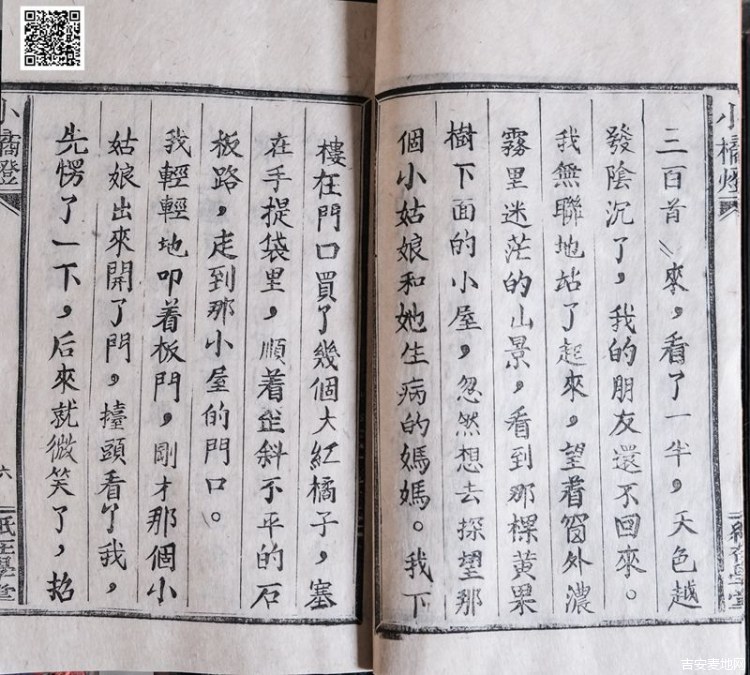 小橘燈
三百首》來，看了一半，天色越
發陰沉了，我的朋友還不回來。
我無聯地站了起來，望着窗外濃
霧里迷茫的山景，看到那棵黃果
樹下面的小屋，忽然想去探望那
個小姑娘和她生病的媽媽。我下
樓在門口買了幾個大紅橘子，塞
在手提袋里，順着歪斜不平的石
板路，走到那小屋的門口。
我輕輕地叩着板門，剛才那個小
姑娘出來開了門，擡頭看了我，
先愣了一下，后來就微笑了，招
小橘燈
六
吉安麦地网